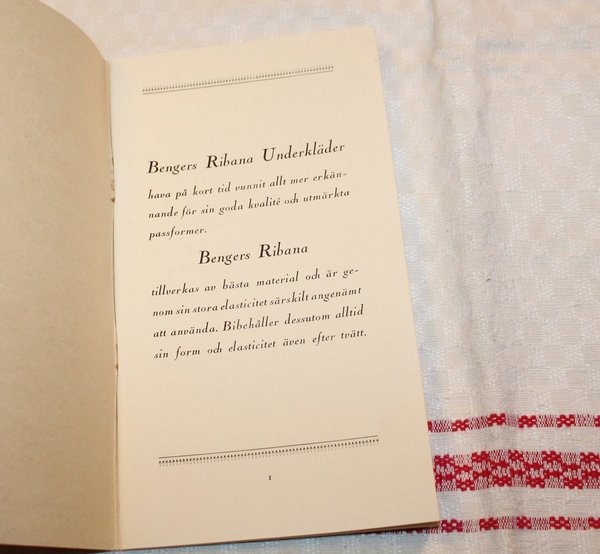 Bengers Ribana Underkläder
hava på kort tid vunnit allt mer erkän-
nande för sin goda kvalité och utmärkta
passformer.
Bengers Ribana
tillverkas av bästa material och är ge-
nom sin stora elasticitet särskilt angenämt
att använda. Bibehåller dessutom alltid
sin form och elasticitet även efter tvätt.
1